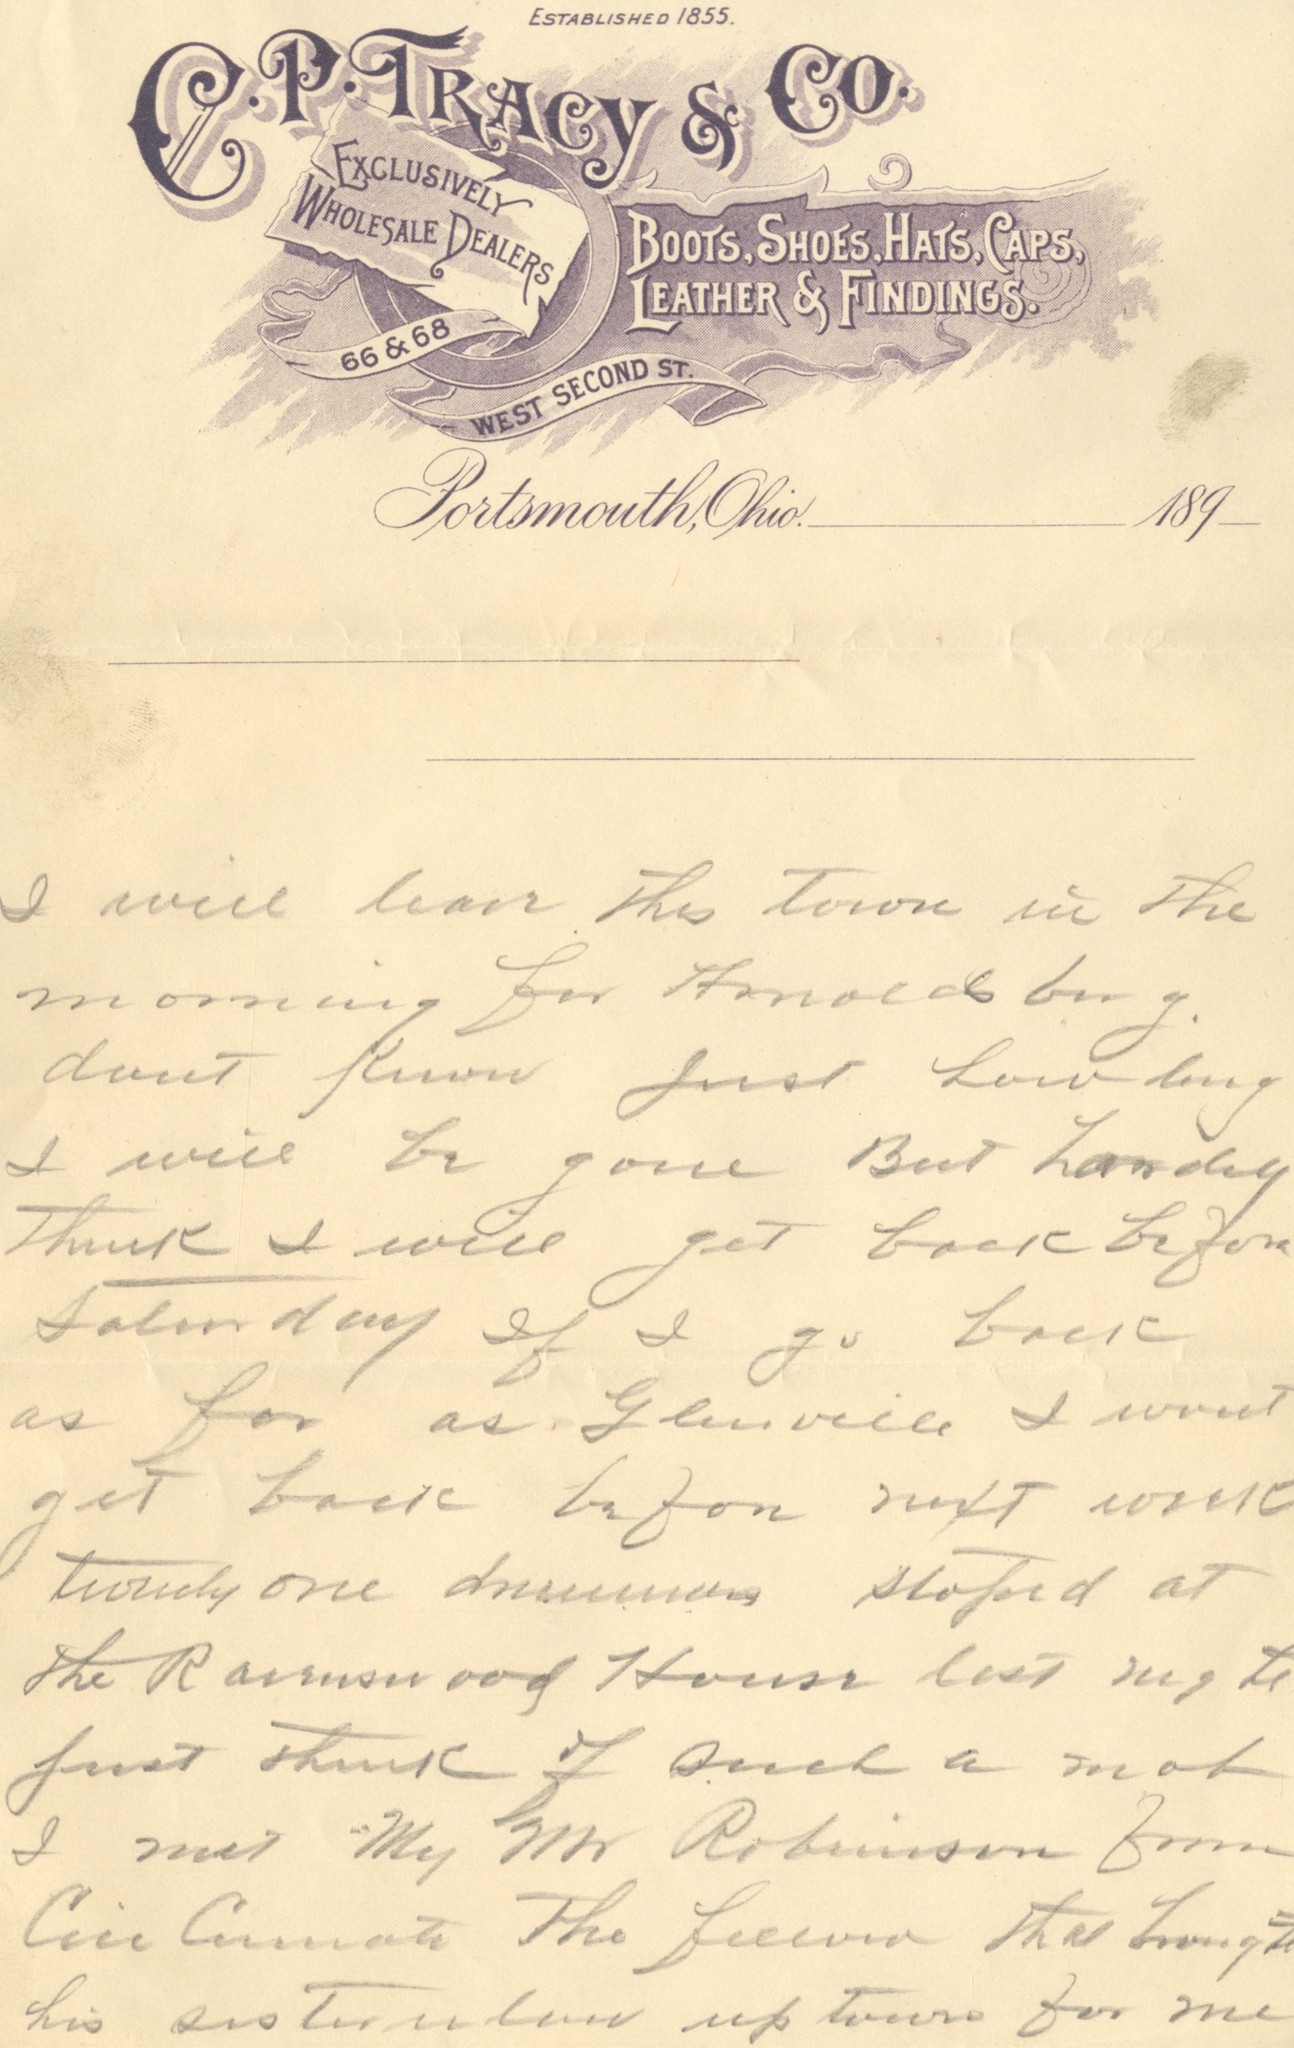 ESTABLISHED 1855.
C. P. TRACY & CO.
EXCLUSIVELY
WHOLESALE DEALERS
BOOTS, SHOES, HATS, CAPS,
LEATHER & FINDINGS.
66 & 68
WEST SECOND ST.
Portsmouth, Ohio. 189
I will leave this town in the
morning for Arnoldsburg.
dont know just how long
I will be gone But hardly
think I will get back before
Saturday If I go back
as far as Glenville I wont
get back before next week
twenty one drummers stoped at
the Ravenswood House last night
just think of such a mob
I met My Mr Robinson from
Cincinnati The fellow that brought
his sister in law up town for me